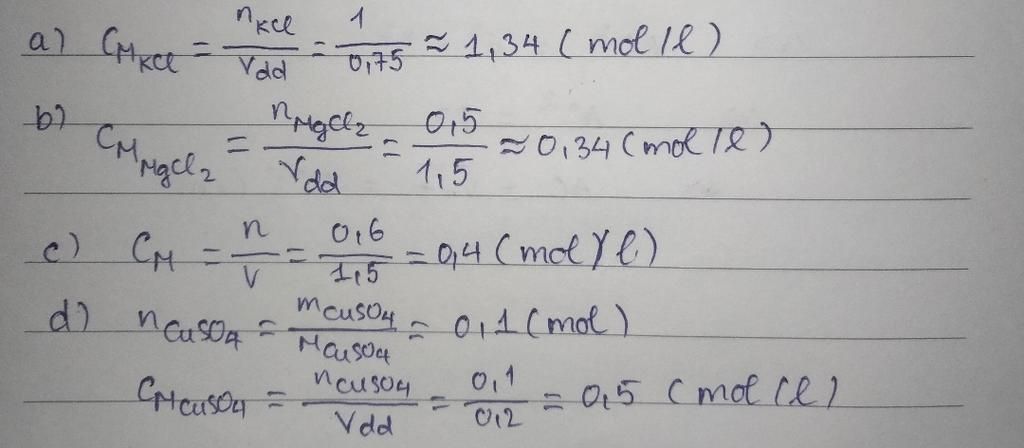 a) C_M_KCl = n_KCl / V_dd = 1 / 0,75 ≈ 1,34 (mol/l)
b) C_M_MgCl₂ = n_MgCl₂ / V_dd = 0,5 / 1,5 ≈ 0,34 (mol/l)
c) C_M = n / V = 0,6 / 1,5 = 0,4 (mol/l)
d) n_CuSO₄ = m_CuSO₄ / M_CuSO₄ = 0,1 (mol)
C_M_CuSO₄ = n_CuSO₄ / V_dd = 0,1 / 0,2 = 0,5 (mol/l)